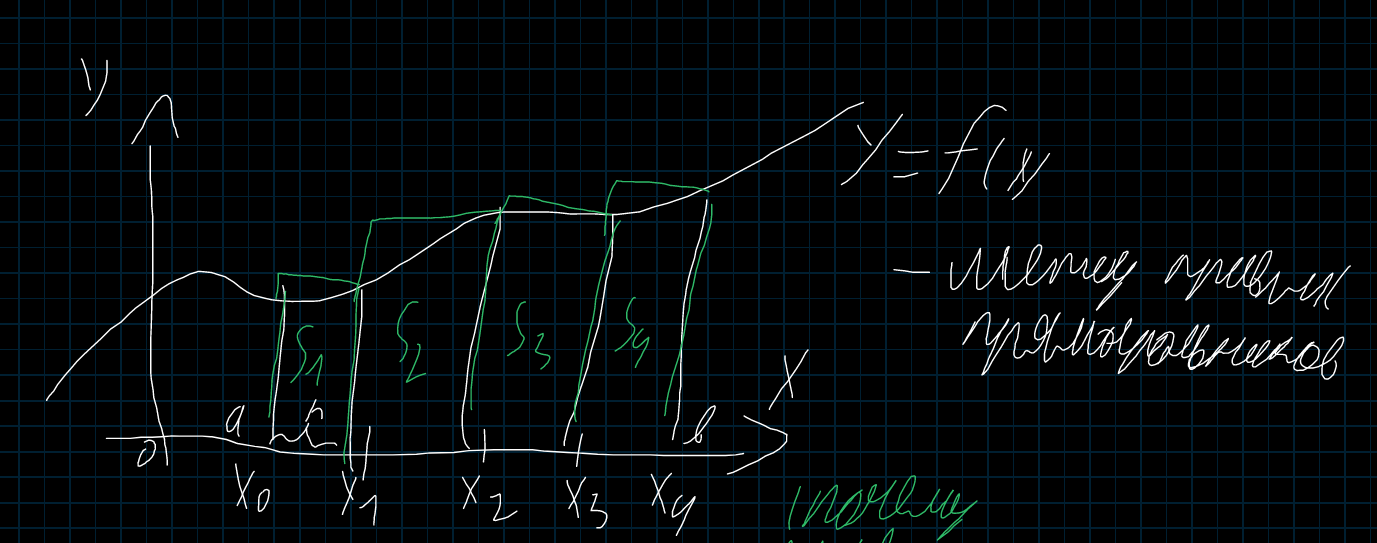 y
y = f(x)
– Метод правых
прямоугольников
S1 S2 S3 S4
a h b x
0
x0 x1 x2 x3 x4